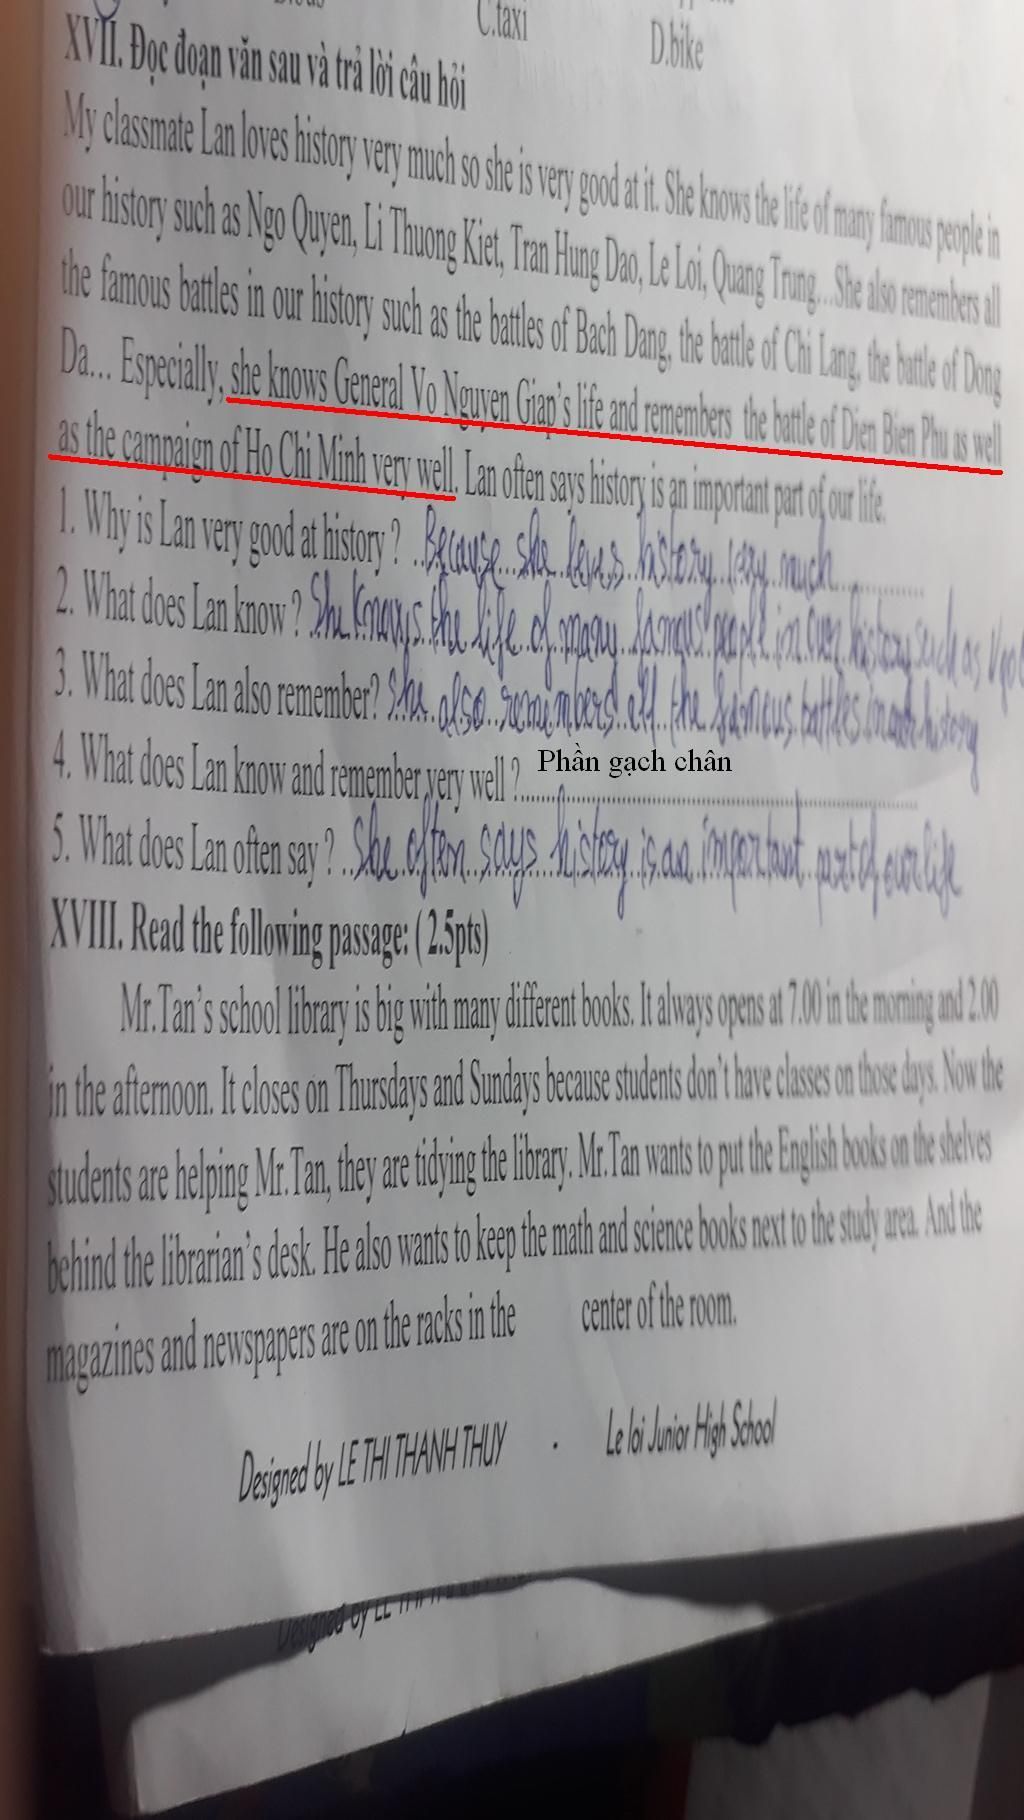 C.taxi
D.bike
XVII. Đọc đoạn văn sau và trả lời câu hỏi
My classmate Lan loves history very much so she is very good at it. She knows the life of many famous people in
our history such as Ngo Quyen, Li Thuong Kiet, Tran Hung Dao, Le Loi, Quang Trung...She also remembers all
the famous battles in our history such as the battles of Bach Dang, the battle of Chi Lang, the battle of Dong
Da... Especially, she knows General Vo Nguyen Giap's life and remembers the battle of Dien Bien Phu as well
as the campaign of Ho Chi Minh very well. Lan often says history is an important part of our life.
1. Why is Lan very good at history ? Because she loves history very much
2. What does Lan know ? She knows the life of many famous people in our history such as
3. What does Lan also remember? She also remembers all the famous battles in our history
4. What does Lan know and remember very well ? Phần gạch chân
5. What does Lan often say ? She often says history is an important part of our life
XVIII. Read the following passage: ( 2.5pts)
Mr.Tan's school library is big with many different books. It always opens at 7.00 in the morning and 2.00
in the afternoon. It closes on Thursdays and Sundays because students don't have classes on those days. Now the
students are helping Mr.Tan, they are tidying the library. Mr.Tan wants to put the English books on the shelves
behind the librarian's desk. He also wants to keep the math and science books next to the study area. And the
magazines and newspapers are on the racks in the center of the room.
Designed by LE THI THANH THUY - Le loi Junior High School
Designed by LE